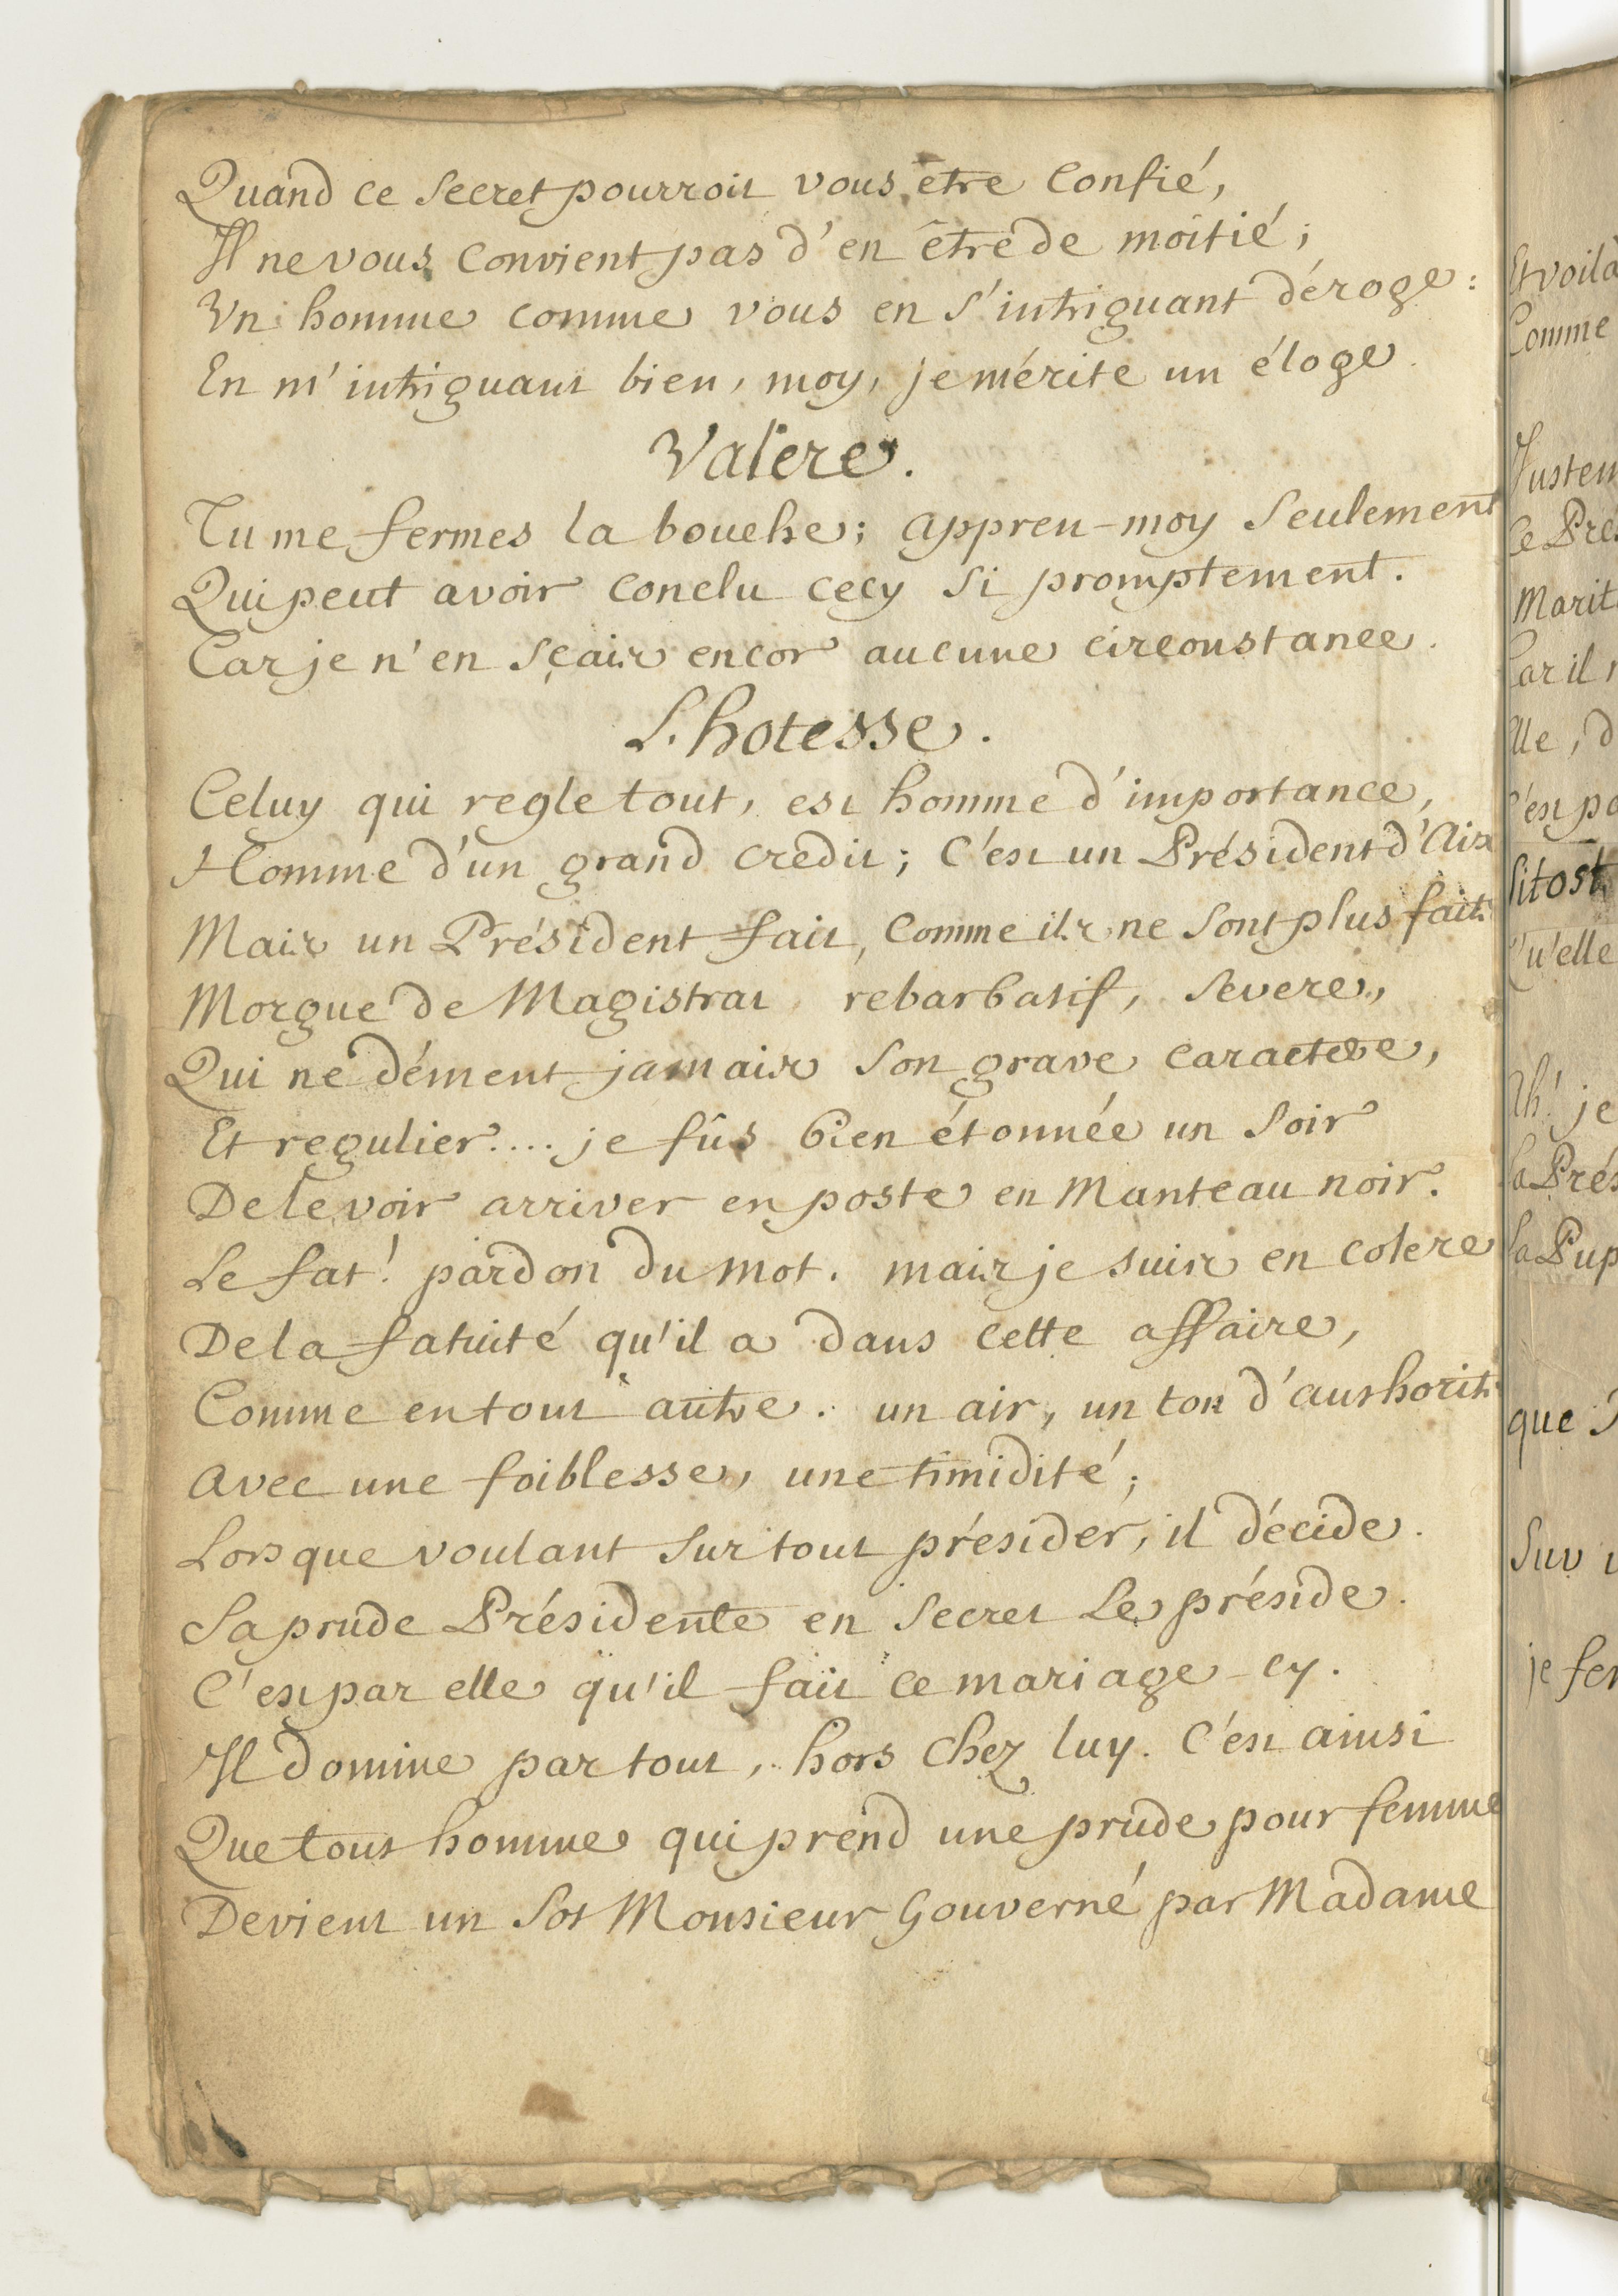 Quand ce secret pourroit vous etre confié,
Il ne vous convient pas d'en être de moitié;
Un homme comme vous en s'intriguant déroge:
En m'intriguant bien, moy, je mérite un éloge.
Valere.
Tu me fermes la bouche; appren-moy seulement
Qui peut avoir conclu cecy si promptement.
Car je n'en sçais encor aucune circonstance.
L'hotesse.
Celuy qui regle tout, est homme d'importance,
Homme d'un grand credit; C'est un Président d'Aix
Mais un Président fait, comme ils ne sont plus faits
Morgue de Magistrat rebarbatif, severe,
Qui ne dément jamais son grave caractere,
Et regulier.... je fûs bien étonnée un soir
De le voir arriver en poste en Manteau noir.
Le fat! pardon du mot. mais je suis en colere
De la fatuité qu'il a dans cette affaire,
Comme en tout autre. un air, un ton d'authorité
Avec une foiblesse, une timidité;
Lorsque voulant sur tout présider, il décide.
Sa prude Présidente en secret le préside.
C'est par elle qu'il fait ce mariage-cy.
Il domine par tout, hors chez luy. C'est ainsi
Que tout homme qui prend une prude pour femme
Devient un sot Monsieur Gouverné par Madame
Et voilà
Comme
Justem
le Prés
Marit
Car il
Elle, d
C'est po
Sitost
Qu'elle
Ah! je
la Prés
la Pup
que
Suv
je fer